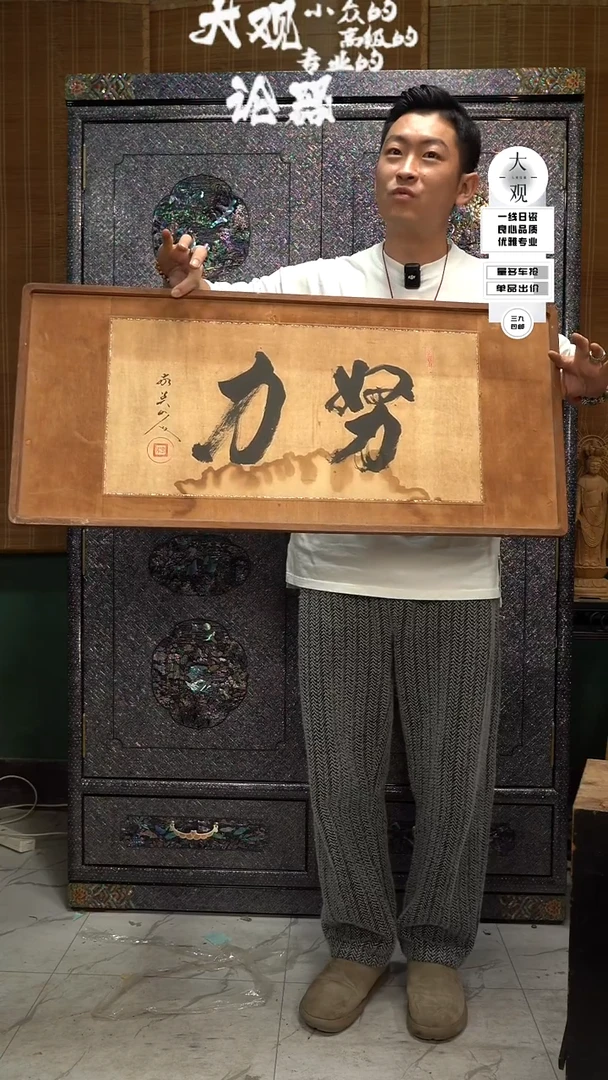 大观
小众的
高级的
专业的
论器
大
观
良心品质
优雅专业
量多车抢
单品出价
三九
包邮
努力